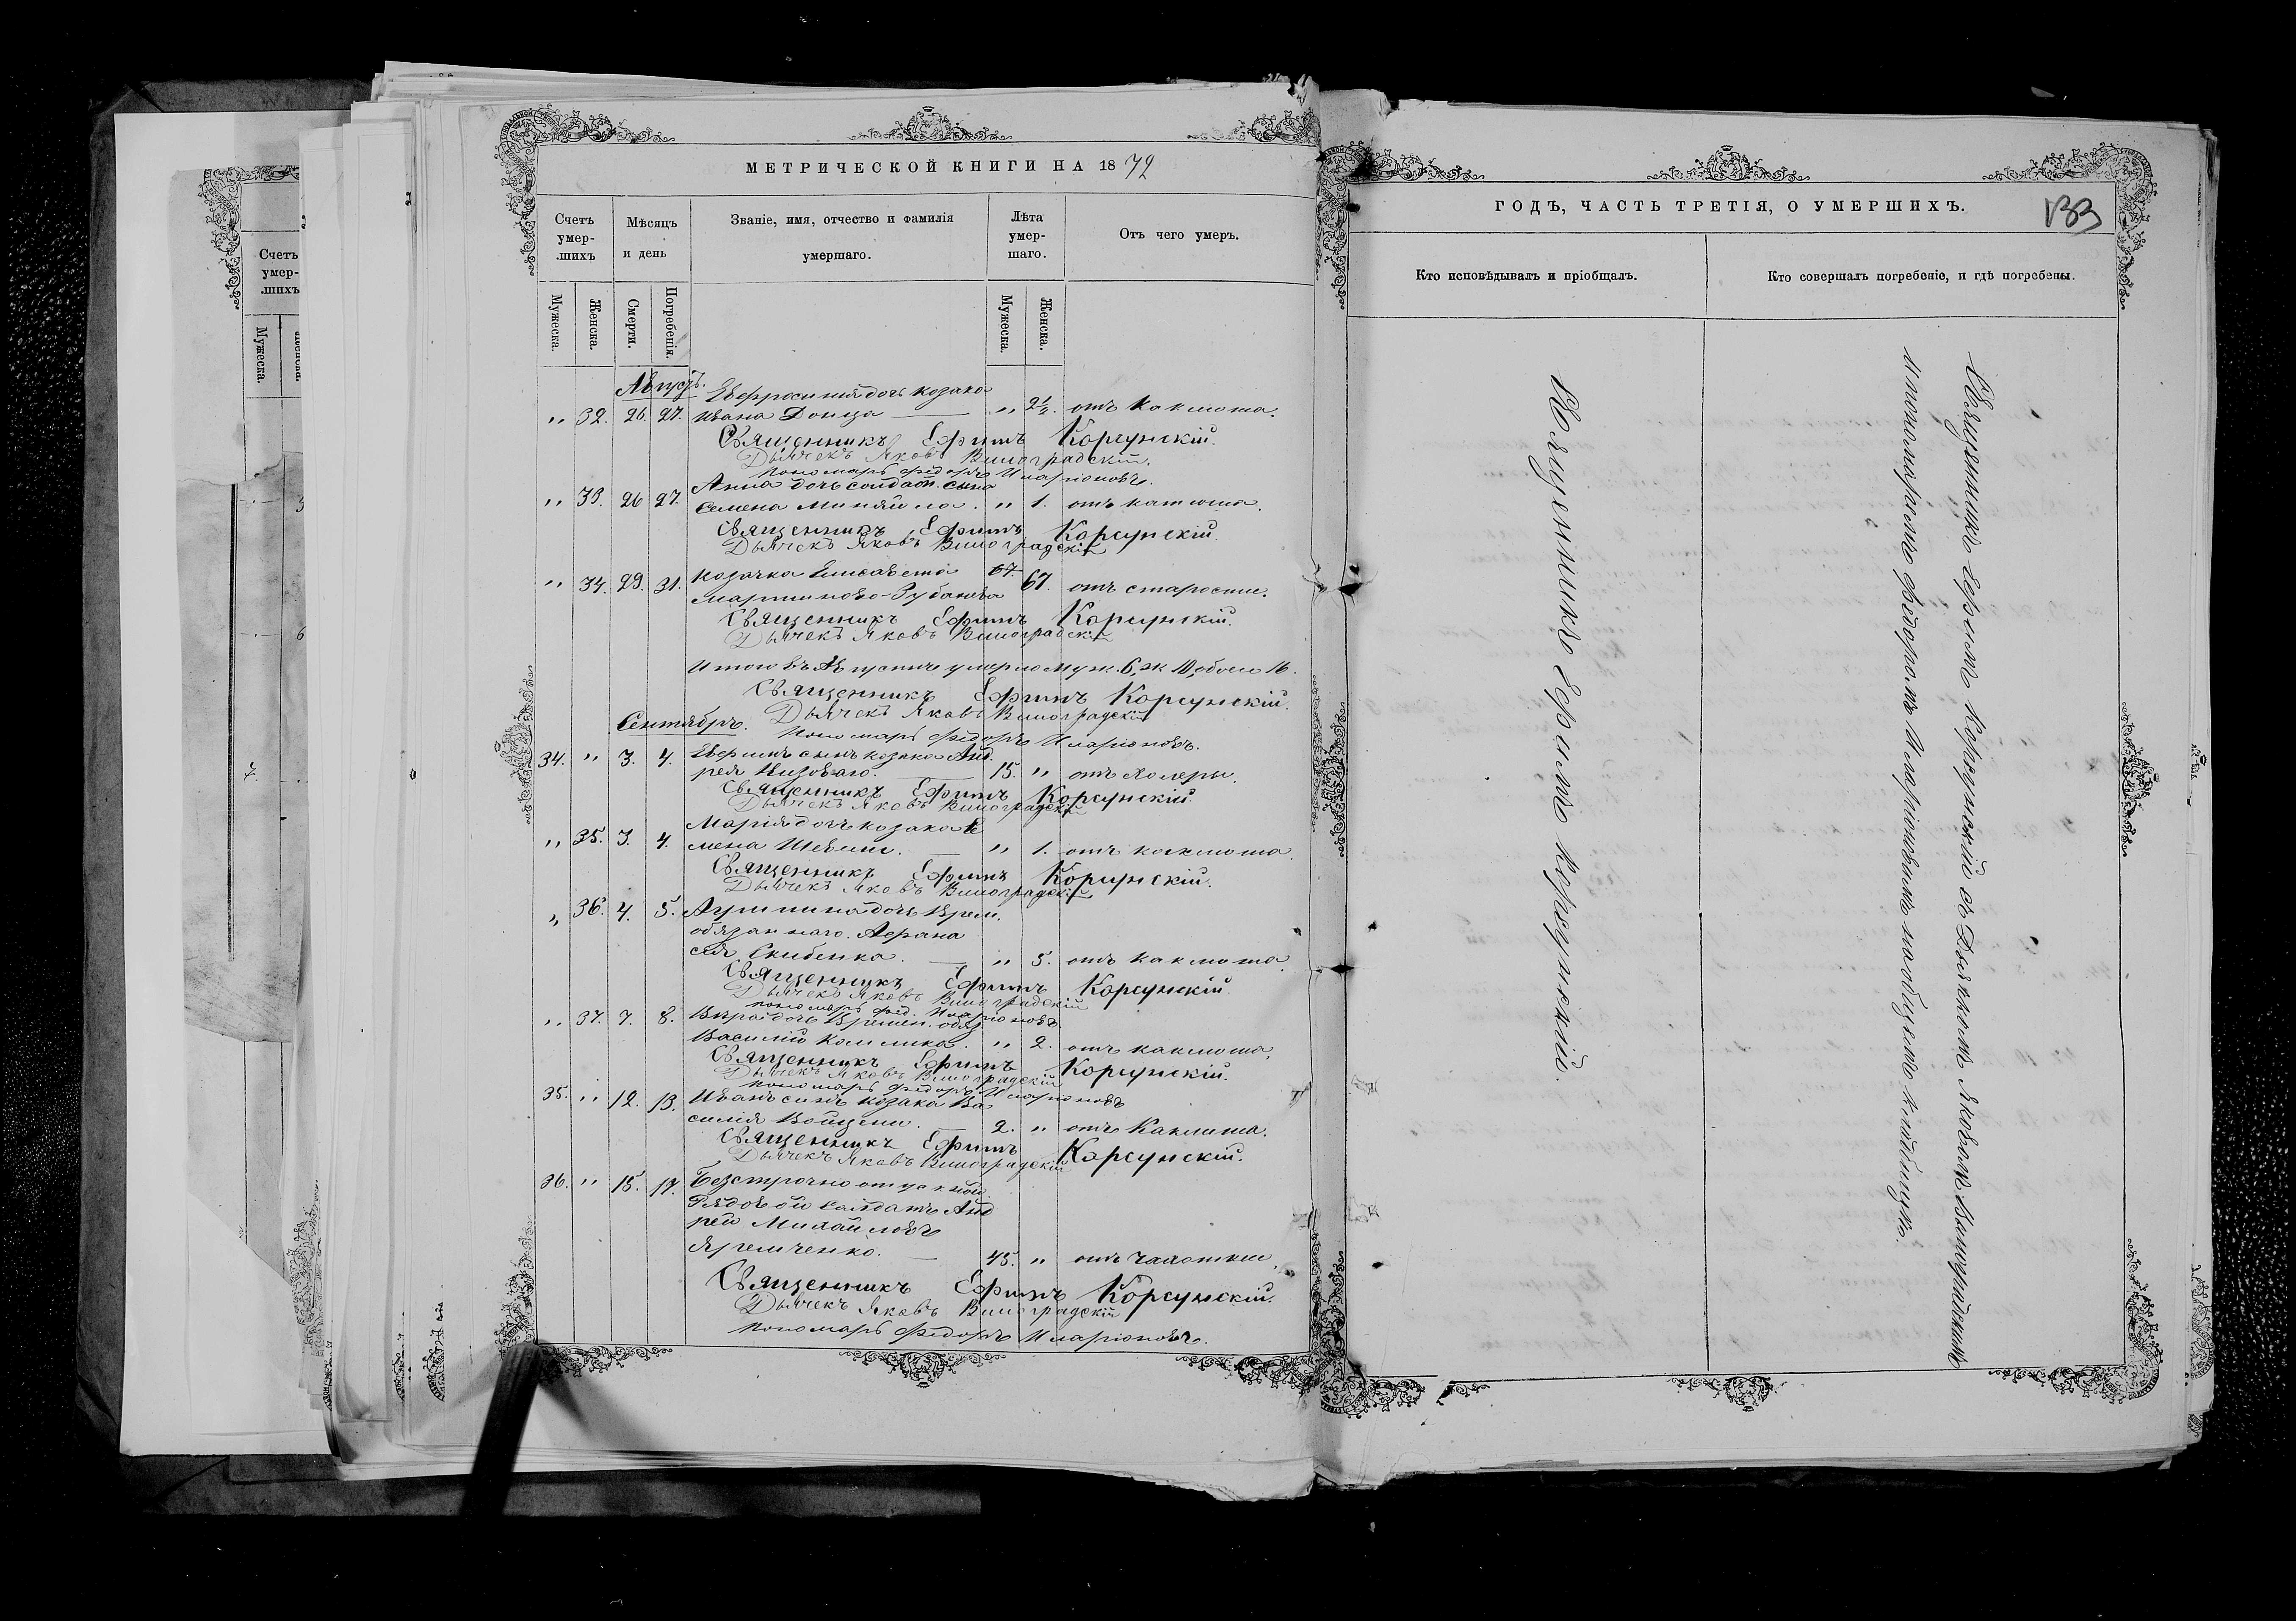 МЕТРИЧЕСКОЙ КНИГИ НА 1872
Счетъ умер-шихъ
Мѣсяцъ и день
Званіе, имя, отчество и фамилія умершаго.
Лѣта умер-шаго.
Отъ чего умеръ.
Мужеска.
Женска.
Смерти.
Погребенія.
Мужеска.
Женска.
Августъ. Евфросинія дочь козака
" 32. 26. 27. Ивана Донца — " 2½. отъ Каклюша.
Священникъ Ефимъ Корсунскій.
Дьячекъ Яковъ Виноградскій.
Пономарь Федоръ Иларіоновъ.
Анна дочь солдат. сына
" 33. 26 27. Семена " 1. отъ каклюша.
Священникъ Ефимъ Корсунскій
Дьячекъ Яковъ Виноградскій
Козачка Елисавета 67.
" 34. 29. 31. Мартинова 67. отъ старости.
Священникъ Ефимъ Корсунскій.
Дьячекъ Яковъ Виноградскій
Итого въ Августѣ умерло муж. 6, ж 10, обоего 16.
Священникъ Ефимъ Корсунскій.
Сентябрь. Дьячекъ Яковъ Виноградскій
Пономарь Федоръ Иларіоновъ.
34. " 3. 4. сынъ козака Анд
рея Низоваго. — 15. " отъ Холеры.
Священникъ Ефимъ Корсунскій.
Дьячекъ Яковъ Виноградскій
Марія дочь козака
" 35. 3. 4. мена — " 1. отъ каклюша.
Священникъ Ефимъ Корсунскій.
Дьячекъ Яковъ Виноградскій
" 36. 4. 5. дочь Врем.
обязаннаго Афана
сія Скибенка. — " 5. отъ каклюша.
Священникъ Ефимъ Корсунскій.
Дьячекъ Яковъ Виноградскій
Пономарь Фед. Иларіоновъ
" 37. 7. 8. Вѣра дочь Времен. обяз
Василія " 2. отъ каклюша.
Священникъ Ефимъ Корсунскій.
Дьячекъ Яковъ Виноградскій
Пономарь Федоръ Иларіоновъ
35. " 12. 13. Иванъ сынъ козака Ва
силія — 2. " отъ Каклюша.
Священникъ Ефимъ Корсунскій.
Дьячекъ Яковъ Виноградскій
36. " 15. 17. Безсрочно отпускной
Рядовой Солдатъ Анд
рей Михайловъ
Яремченко. — 45. " отъ Чахотки.
Священникъ Ефимъ Корсунскій.
Дьячекъ Яковъ Виноградскій
Пономарь Федоръ Иларіоновъ.
ГОДЪ, ЧАСТЬ ТРЕТІЯ, О УМЕРШИХЪ.
133
Кто исповѣдывалъ и пріобщалъ.
Кто совершалъ погребеніе, и гдѣ погребены.
Священникъ Ефимъ Корсунскій.
Священникъ Ефимъ Корсунскій съ Дьячкомъ Яковомъ Виноградскимъ
и пономаремъ Федоромъ Иларіоновымъ на общемъ кладбищѣ.
Счетъ умер-шихъ
Мужеска.